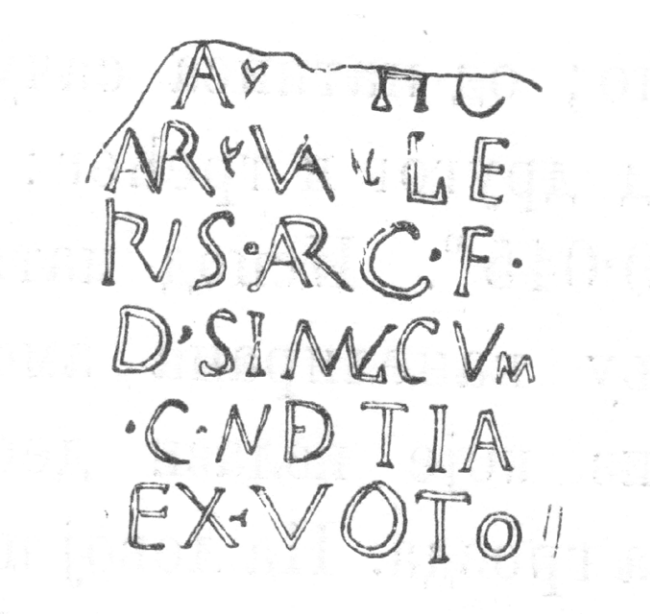 A
AR ❦ VA ❦ LE
RIVS · ARC · F ·
D · SIMVLCVM
· C · NEDTIA
EX · VOTO